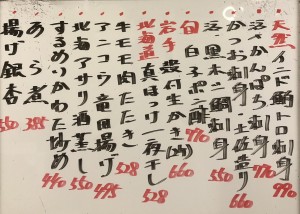 天然 インド鮪トロ刺身 990
活〆かんぱち刺身 770
かつお刺身・土佐造り 660
活〆黒木ニ鯛刺身 550
旬 白子ポン酢 770
岩手 殻付生かき(1ヶ) 660
北海道 真ほっけ一夜干し 528
牛モモ肉たたき 528
アンコウ竜田揚げ 495
北海アサリ酒蒸し 550
するめいかわた炒め 440
あら煮 385
揚げ銀杏 550